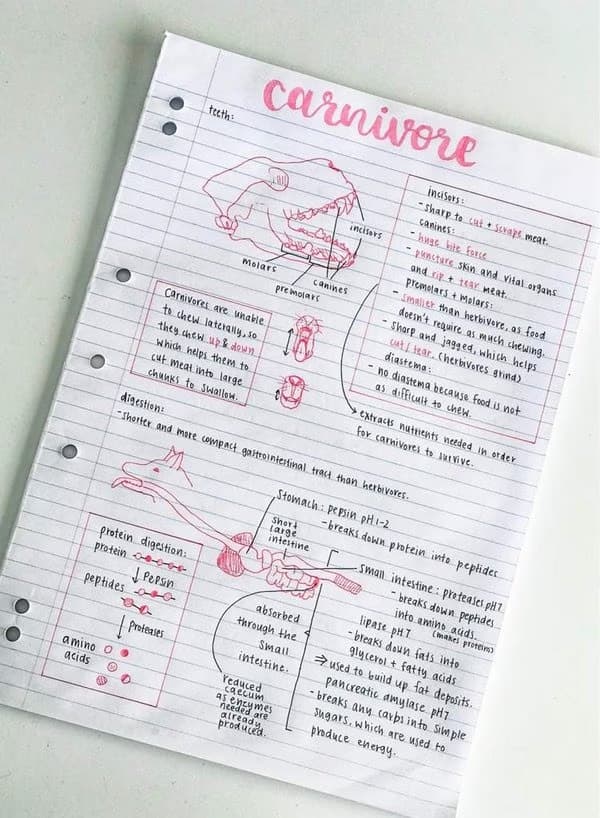 carnivore
teeth:
incisors
molars
canines
premolars
incisors:
- sharp to cut + scrape meat.
canines:
- huge bite force
- puncture skin and vital organs
and rip + tear meat.
premolars + Molars:
- smaller than herbivore, as food
doesn't require as much chewing.
- sharp and jagged, which helps
cut/tear. (herbivores grind)
diastema:
- no diastema because food is not
as difficult to chew.
extracts nutrients needed in order
for carnivores to survive.
Carnivores are unable
to chew laterally, so
they chew up & down
which helps them to
cut meat into large
chunks to swallow.
digestion:
- shorter and more compact gastrointestinal tract than herbivores.
Stomach: pepsin pH 1-2
- breaks down protein into peptides
short
large
intestine
small intestine: proteases pH7
- breaks down peptides
into amino acids.
(makes proteins)
lipase pH7
- breaks down fats into
glycerol + fatty acids
⇒ used to build up fat deposits.
pancreatic amylase pH7
- breaks any carbs into simple
sugars, which are used to
produce energy.
absorbed
through the
small
intestine.
reduced
caecum
as enzymes
needed are
already
produced.
protein digestion:
protein
↓ Pepsin
peptides
↓ Proteases
amino
acids